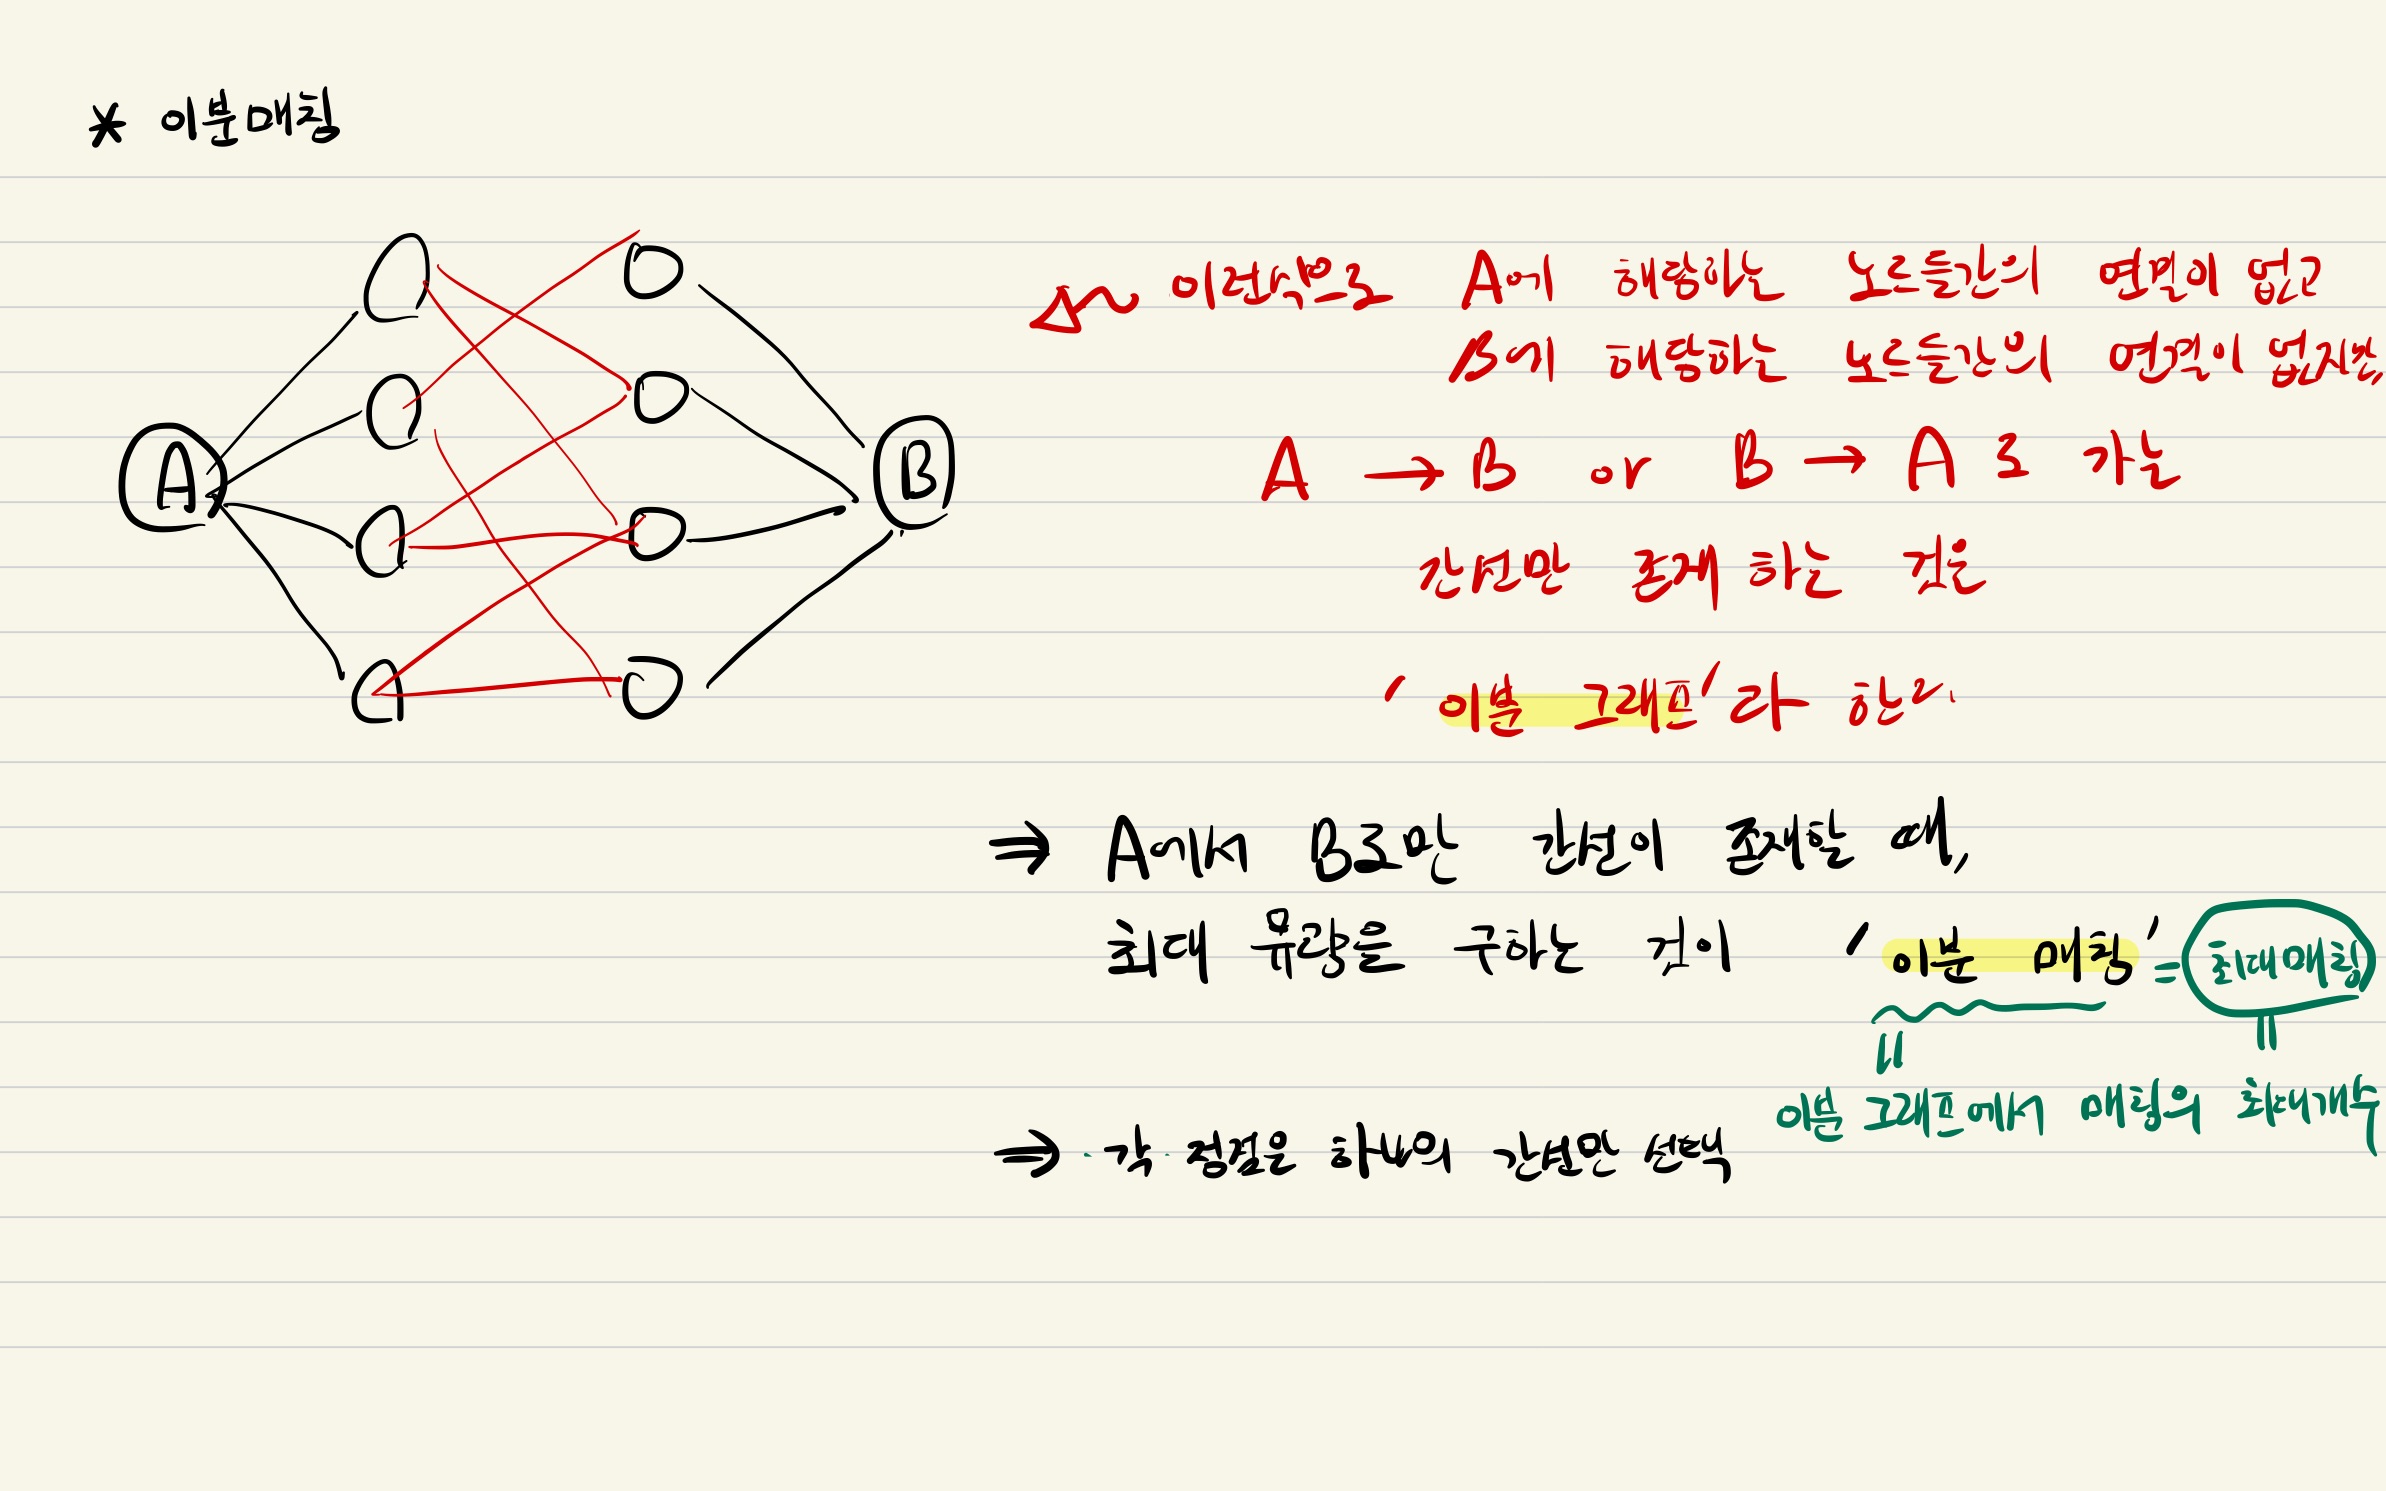 * 이분매칭
A
B
이런식으로 A에 해당하는 노드들간의 연결이 없고
B에 해당하는 노드들간의 연결이 없지만,
A → B or B → A 로 가는
간선만 존재 하는 것을
'이분 그래프'라 한다.
⇒ A에서 B로만 간선이 존재할 때,
최대 유량을 구하는 것이 '이분 매칭' = 최대매칭
이분 그래프에서 매칭의 최대개수
⇒ 각 정점은 하나의 간선만 선택